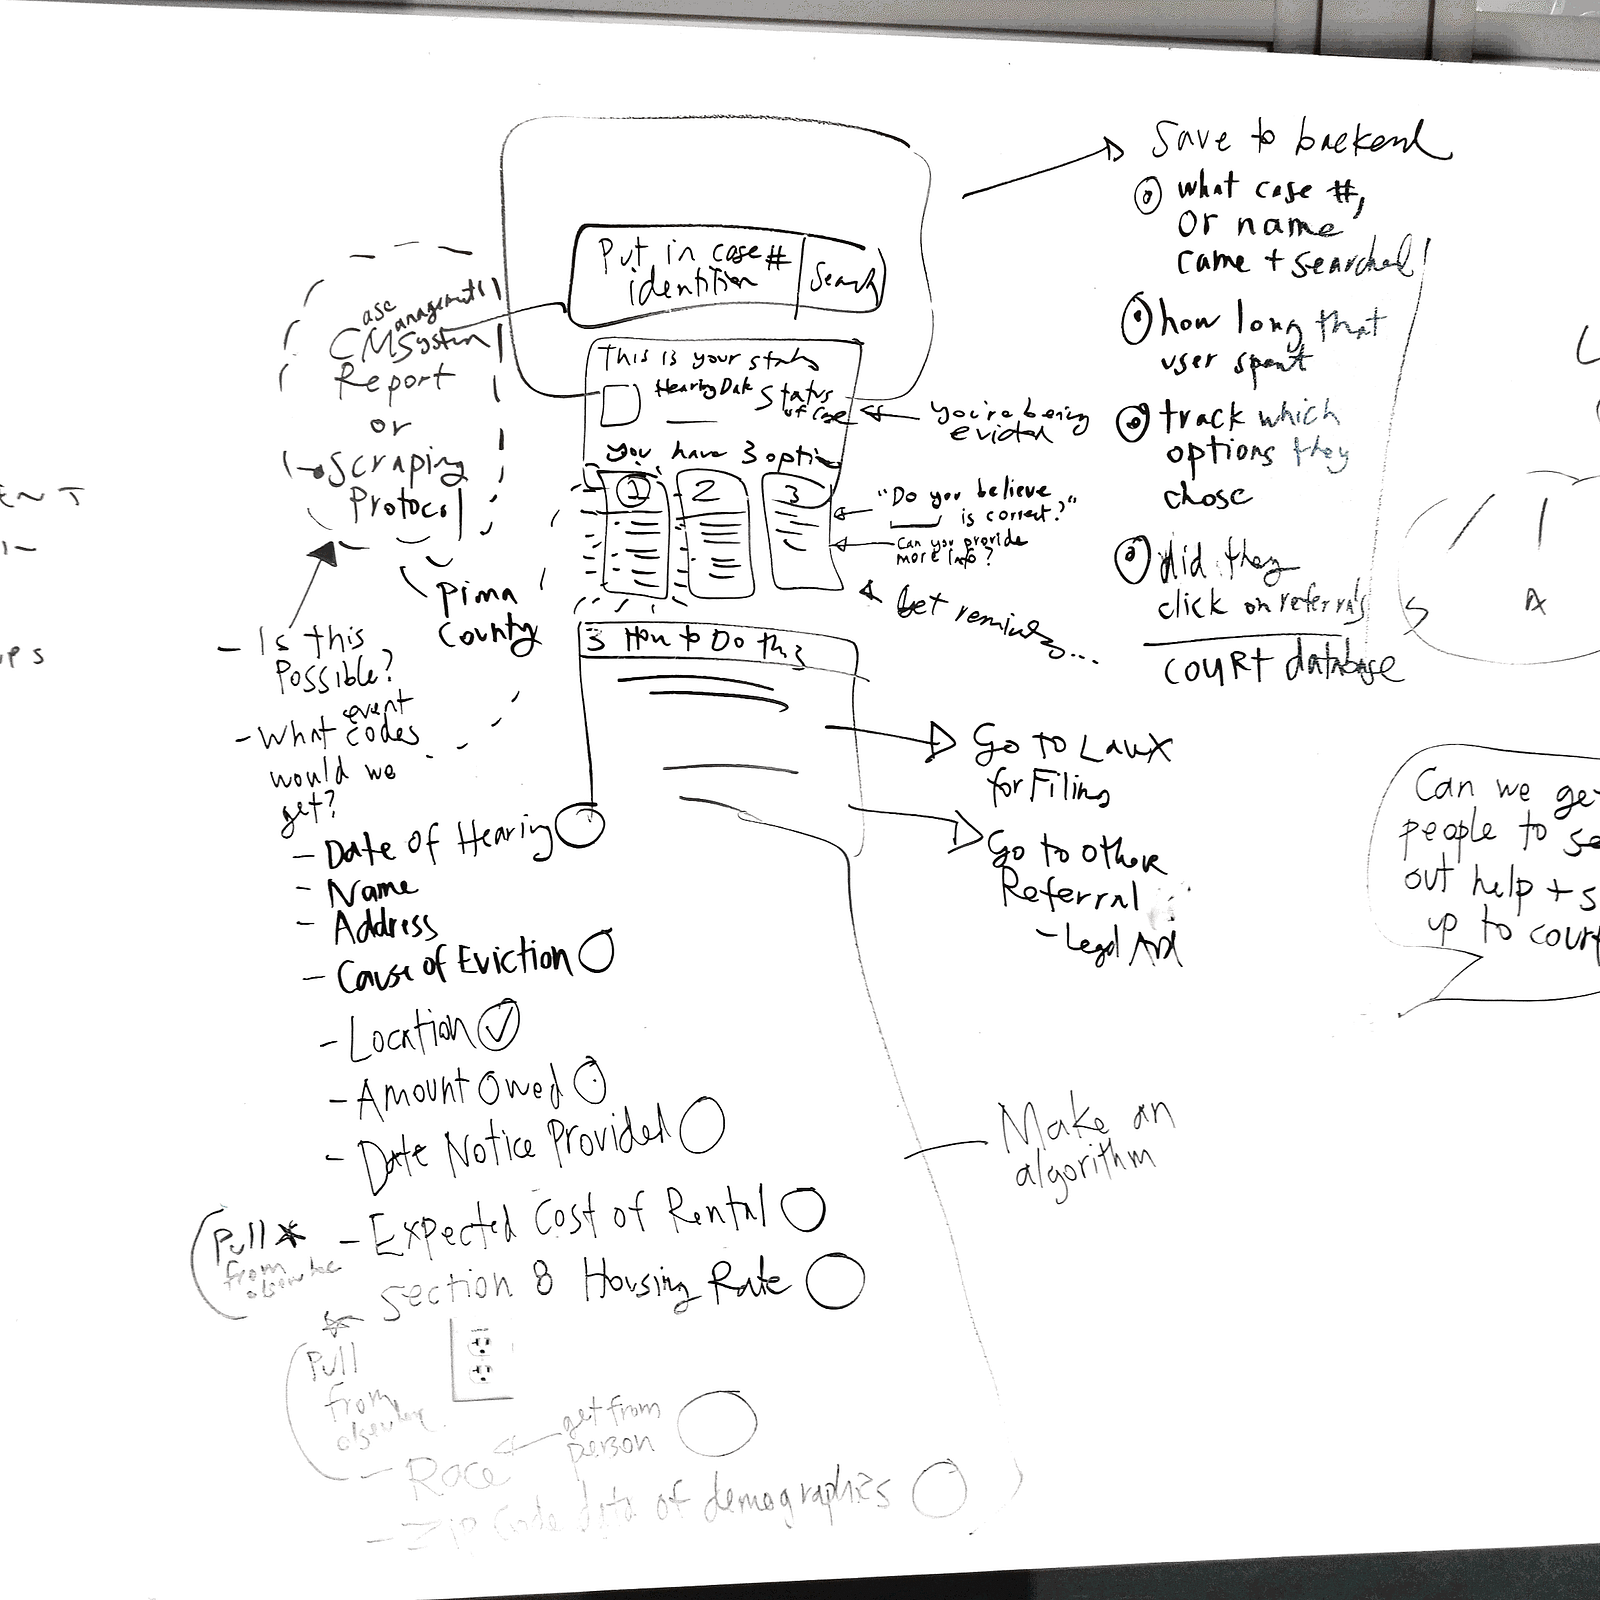 Put in case #
identition
Search
This is your status
Hearing Date Status
of Case
You have 3 option
1 2 3
3 How to Do this
You're being
evicted
"Do you believe
is correct?"
Can you provide
more info?
Get reminders...
Go to LawX
for Filing
Go to other
Referral
- Legal Aid
Make an
algorithm
Save to backend
what case #,
or name
came + searched
how long that
user spent
track which
options they
chose
did they
click on referrals
court database
Case Management
System
Report
or
Scraping
Protocol
Pima
County
- Is this
Possible?
- What event
codes
would we
get?
- Date of Hearing
- Name
- Address
- Cause of Eviction
- Location ✓
- Amount Owed
- Date Notice Provided
Pull * - Expected Cost of Rental
from
elsewhere
* Section 8 Housing Rate
Pull
from
elsewhere
- Race
get from
person
- Zip Code data of demographics
Can we ge
people to se
out help + s
up to cour
A
UPS